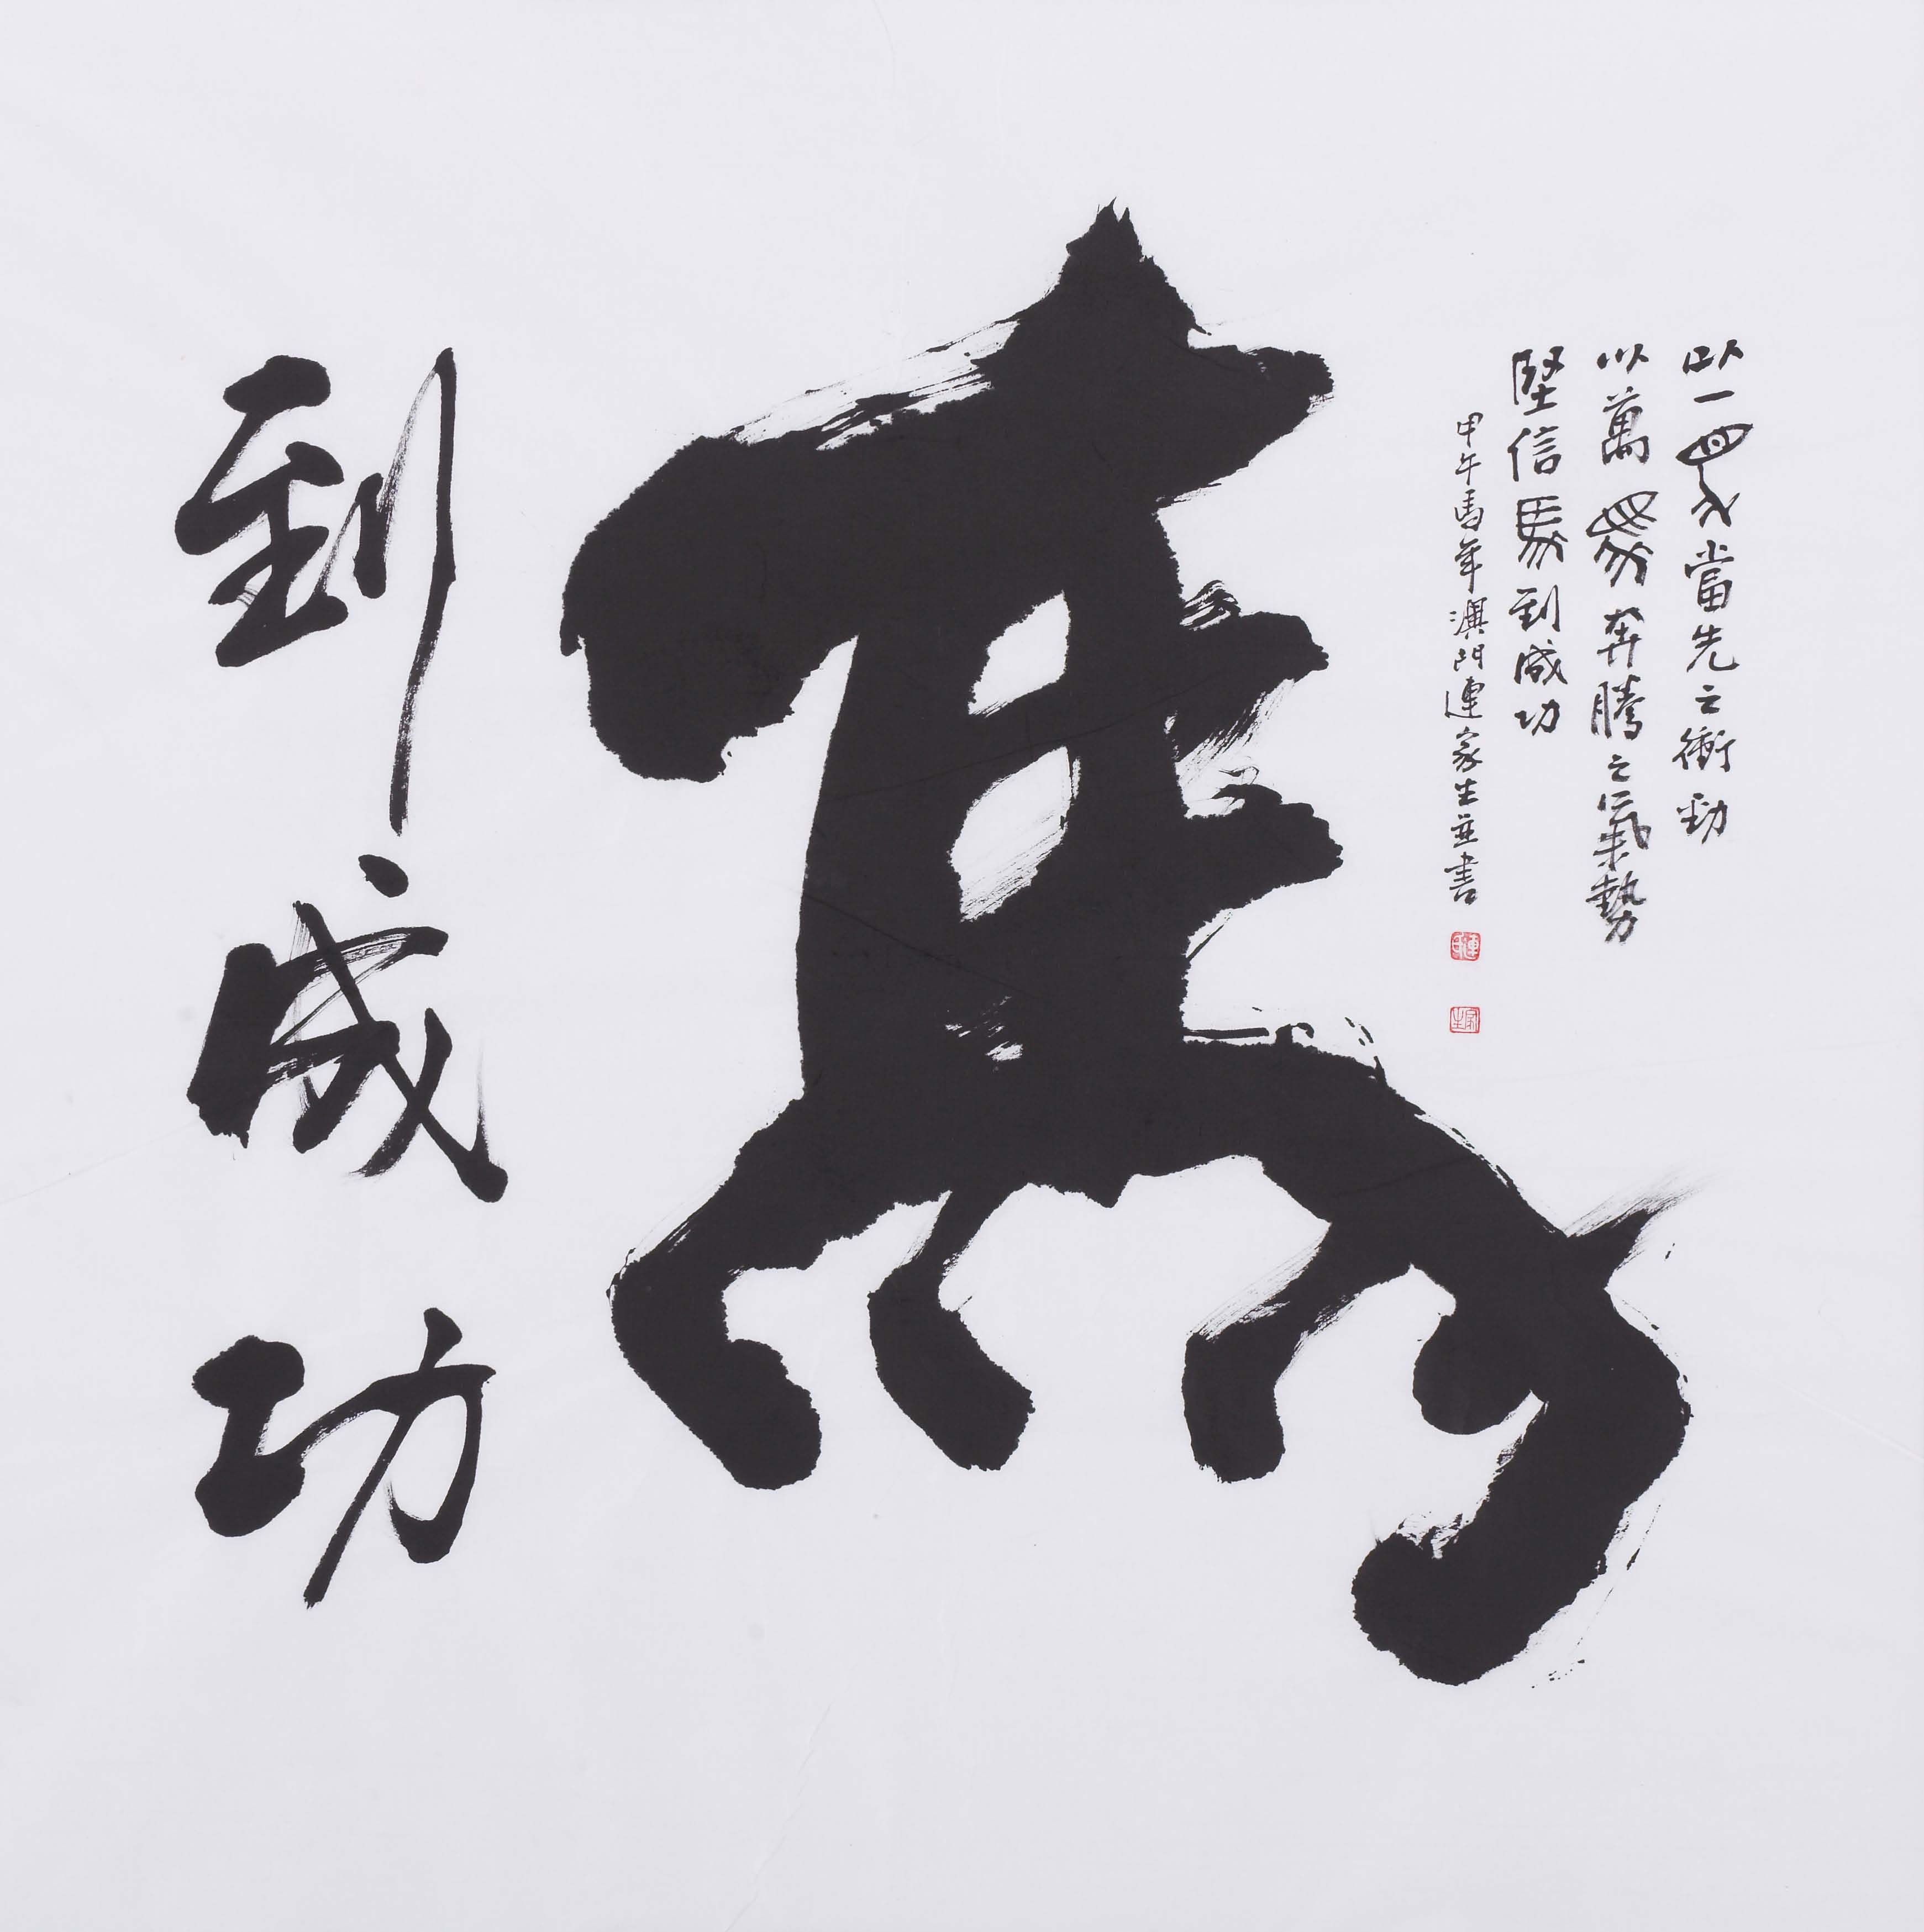 以一馬當先之衝勁
以萬馬奔騰之氣勢
堅信馬到成功
甲午馬年澳門連家生並書
連印
家生
馬
到成功